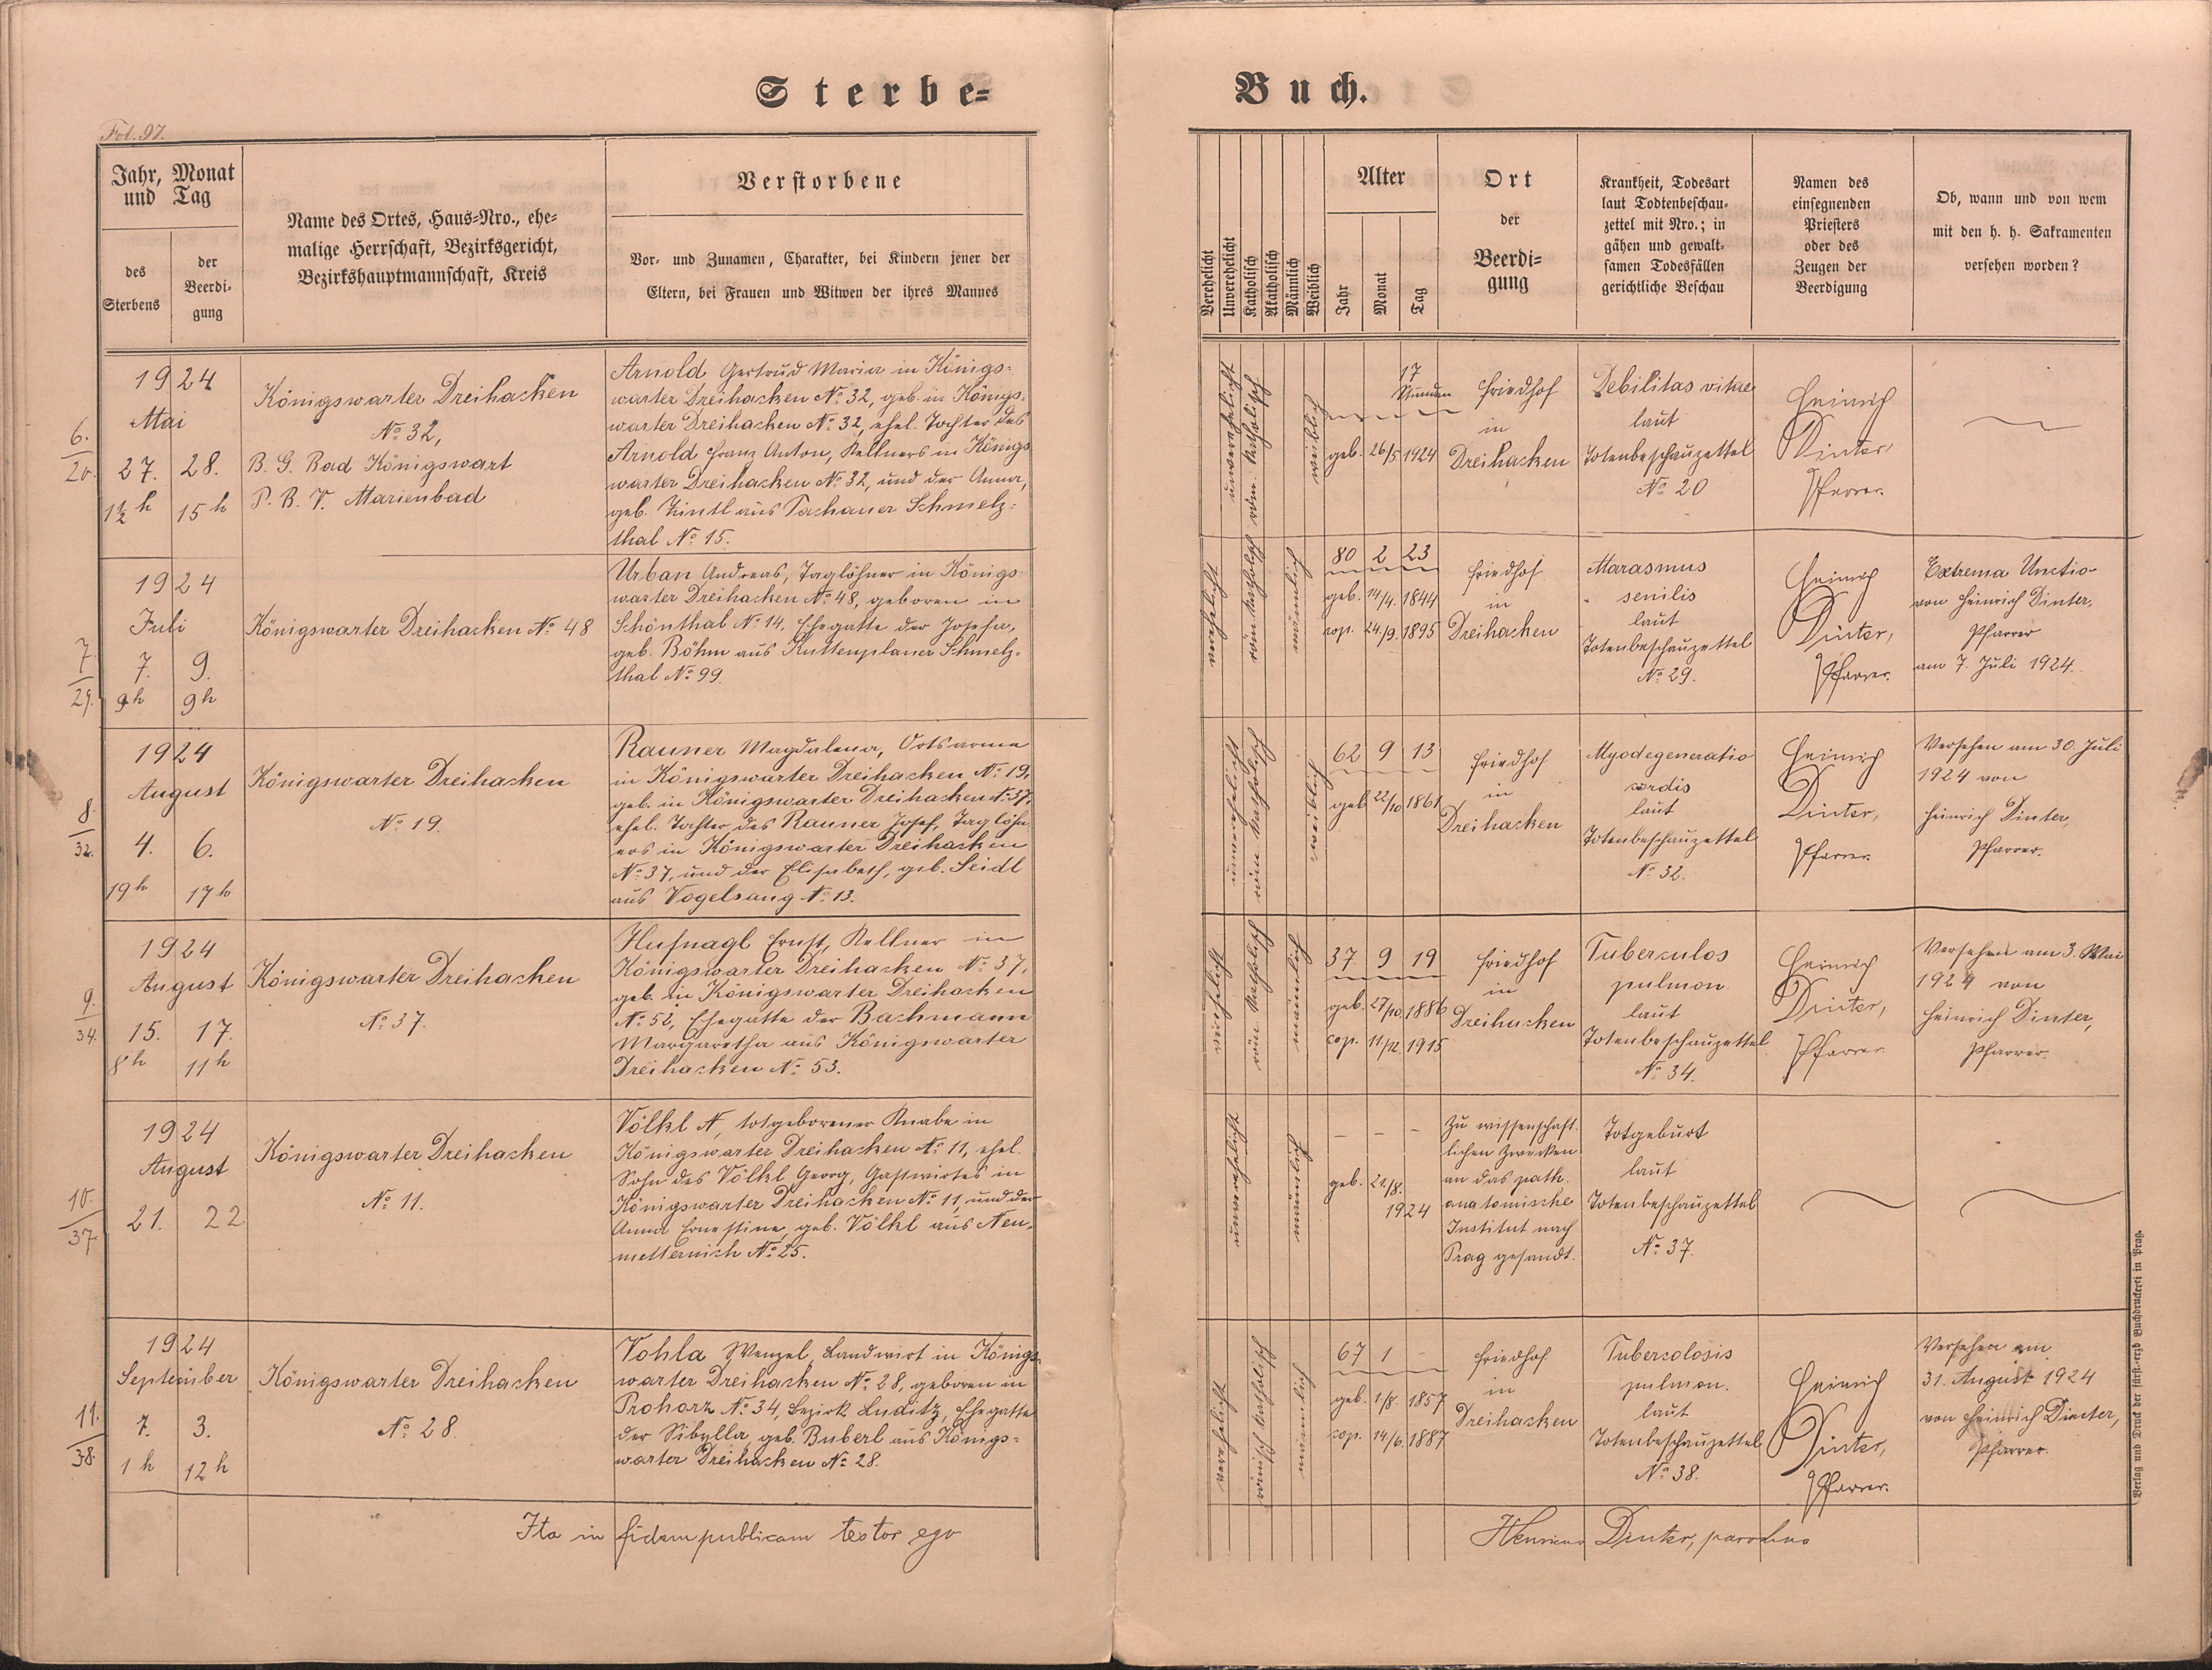 Sterbe=
Buch.
Fol. 97.
Jahr, Monat
und Tag
des
Sterbens
der
Beerdi-
gung
Name des Ortes, Haus=Nro., ehe=
malige Herrschaft, Bezirksgericht,
Bezirkshauptmannschaft, Kreis
Verstorbene
Vor- und Zunamen, Charakter, bei Kindern jener der
Eltern, bei Frauen und Witwen der ihres Mannes
Verehelicht
Unverehelicht
Katholisch
Akatholisch
Männlich
Weiblich
Alter
Jahr
Monat
Tag
Ort
der
Beerdi=
gung
Krankheit, Todesart
laut Todtenbeschau-
zettel mit Nro.; in
gähen und gewalt-
samen Todesfällen
gerichtliche Beschau
Namen des
einsegnenden
Priesters
oder des
Zeugen der
Beerdigung
Ob, wann und von wem
mit den h. h. Sakramenten
versehen worden?
6.
20.
1924
Mai
27. 28.
1½ h 15 h
Königswarter Dreihacken
No 32,
B. G. Bad Königswart
P. B. V. Marienbad
Arnold Gertrud Maria in Königs=
warter Dreihacken No 32, geb. in Königs=
warter Dreihacken No 32, ehel. Tochter des
Arnold Franz Anton, Kellners in Königs
warter Dreihacken No 32, und der Anna,
geb. Zintl aus Tachauer Schmelz=
thal No 15.
unverehelicht
röm. katholisch
weiblich
17
Stunden
geb. 26/5 1924
Friedhof
in
Dreihacken
Debilitas vitae
laut
Totenbeschauzettel
No 20
Heinrich
Dinter
Pfarrer.
7.
29.
1924
Juli
7. 9.
9h 9h
Königswarter Dreihacken No 48
Urban Andreas, Taglöhner in Königs=
warter Dreihacken No 48, geboren in
Schönthal No 14, Ehegatte der Josefa,
geb. Böhm aus Kuttenplaner Schmelz=
thal No 99.
verehelicht
röm. katholisch
männlich
80 2 23
geb. 14/4. 1844
cop. 24./9. 1895
Friedhof
in
Dreihacken
Marasmus
senilis
laut
Totenbeschauzettel
No 29.
Heinrich
Dinter,
Pfarrer.
Extrema Unctio
von Heinrich Dinter,
Pfarrer
am 7. Juli 1924.
8.
32.
1924
August
4. 6.
19h 17h
Königswarter Dreihacken
No 19.
Rauner Magdalena, Ortsarme
in Königswarter Dreihacken No 19,
geb. in Königswarter Dreihacken No 37,
ehel. Tochter des Rauner Josef, Taglöhn=
ers in Königswarter Dreihacken
No 37, und der Elisabeth, geb. Seidl
aus Vogelsang No 13.
unverehelicht
röm. katholisch
weiblich
62 9 13
geb. 22/10 1861
Friedhof
in
Dreihacken
Myodegeneratio
cordis
laut
Totenbeschauzettel
No 32.
Heinrich
Dinter,
Pfarrer.
Versehen am 30. Juli
1924 von
Heinrich Dinter,
Pfarrer.
9.
34.
1924
August
15. 17.
8h 11h
Königswarter Dreihacken
No 37.
Hufnagl Ernst, Kellner in
Königswarter Dreihacken No 37,
geb. in Königswarter Dreihacken
No 52, Ehegatte der Bachmann
Margaretha aus Königswarter
Dreihacken No 53.
verehelicht
röm. katholisch
männlich
37 9 19
geb. 27/10. 1886
cop. 11/12. 1915
Friedhof
in
Dreihacken
Tuberculos
pulmon.
laut
Totenbeschauzettel
No 34.
Heinrich
Dinter,
Pfarrer
Versehen am 3. Mai
1924 von
Heinrich Dinter,
Pfarrer.
10.
37.
1924
August
21. 22
Königswarter Dreihacken
No 11.
Völkl N, totgeborener Knabe in
Königswarter Dreihacken No 11, ehel.
Sohn des Völkl Georg, Gastwirtes in
Königswarter Dreihacken No 11, und der
Anna Ernestine, geb. Völkl aus Neu-
metternich No 25.
unverehelicht
männlich
geb. 21./8.
1924
Zu wissenschaft
lichen Zwecken
an das path.
anatomische
Institut nach
Prag gesandt.
Totgeburt
laut
Totenbeschauzettel
No 37.
11.
38.
1924
September
7. 3.
1 h 12 h
Königswarter Dreihacken
No 28.
Vohla Wenzel, Landwirt in Königs=
warter Dreihacken No 28, geboren in
Prohorz No 34, Bezirk Luditz, Ehegatte
der Sibylla, geb. Buberl aus Königs=
warter Dreihacken No 28.
verehelicht
römisch katholisch
männlich
67 1 -
geb. 1/8. 1857
cop. 14/6. 1887
Friedhof
in
Dreihacken
Tubercolosis
pulmon.
laut
Totenbeschauzettel
No 38.
Heinrich
Dinter,
Pfarrer.
Versehen am
31. August 1924
von Heinrich Dinter,
Pfarrer.
Ita in fidem publicam testor ego
Henricus Dinter, parochus
Verlag und Druck der fürst.-erzb Buchdruckerei in Prag.